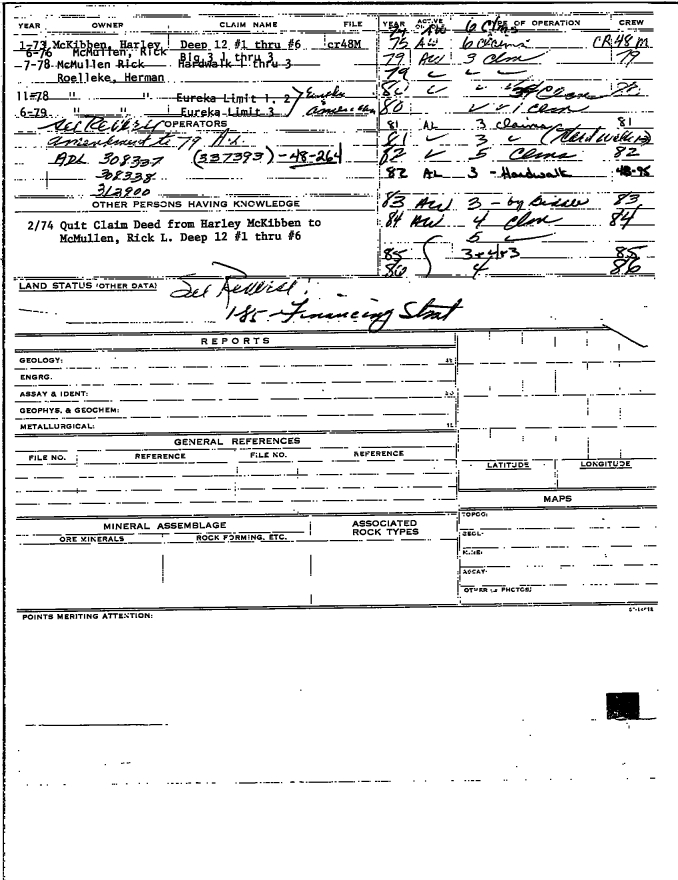 YEAR OWNER CLAIM NAME FILE YEAR ACTIVE TYPE OF OPERATION CREW
74 AW 6 Clms
1-73 McKibben, Harley Deep 12 #1 thru #6 cr48M 75 AW 6 claims CR 48 M
6-76 McMullen, Rick Big 3 1 thru 3
-7-78 McMullen Rick Hardwalk 1 thru 3 79 AW 3 clm 79
Roelleke, Herman 79
11-78 " " Eureka Limit 1, 2 80
6-79 " " Eureka Limit 3 80 1 clm
See Reverse OPERATORS 81 AL 3 claims 81
amendment to 79 A.L. 81 3
ADL 308337 (337393)-48-264 82 5 Clms 82
308338 82 AL 3 - Hardwalk 48-95
312900
OTHER PERSONS HAVING KNOWLEDGE 83 AW 3 - by 83
2/74 Quit Claim Deed from Harley McKibben to 84 AW 4 clm 84
McMullen, Rick L. Deep 12 #1 thru #6 5
85 3+4+3 85
86 4 86
LAND STATUS (OTHER DATA) See Reverse!
1-85 - Financing Stmt
REPORTS
GEOLOGY:
ENGRG.
ASSAY & IDENT:
GEOPHYS. & GEOCHEM:
METALLURGICAL:
GENERAL REFERENCES
FILE NO. REFERENCE FILE NO. REFERENCE
LATITUDE LONGITUDE
MAPS
MINERAL ASSEMBLAGE ASSOCIATED ROCK TYPES
ORE MINERALS ROCK FORMING, ETC.
TOPOG:
GEOL.
ASSAY.
OTHER (& PHOTOS)
POINTS MERITING ATTENTION: